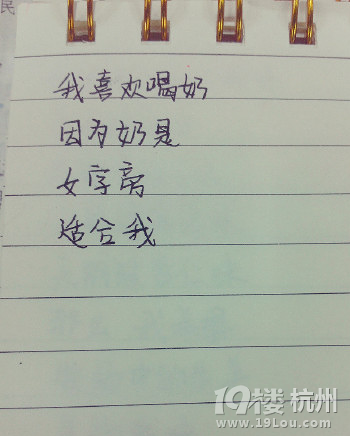 民
我喜欢喝奶
因为奶是
女字旁
适合我
19楼杭州
www.19lou.com